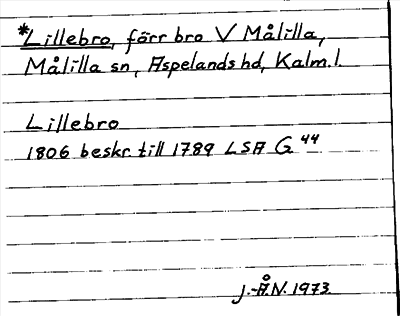 *Lillebro, förr bro V Målilla,
Målilla sn, Aspelands hd, Kalm. l.
Lillebro
1806 beskr. till 1789 LSA G 44
J.-Å.N. 1973